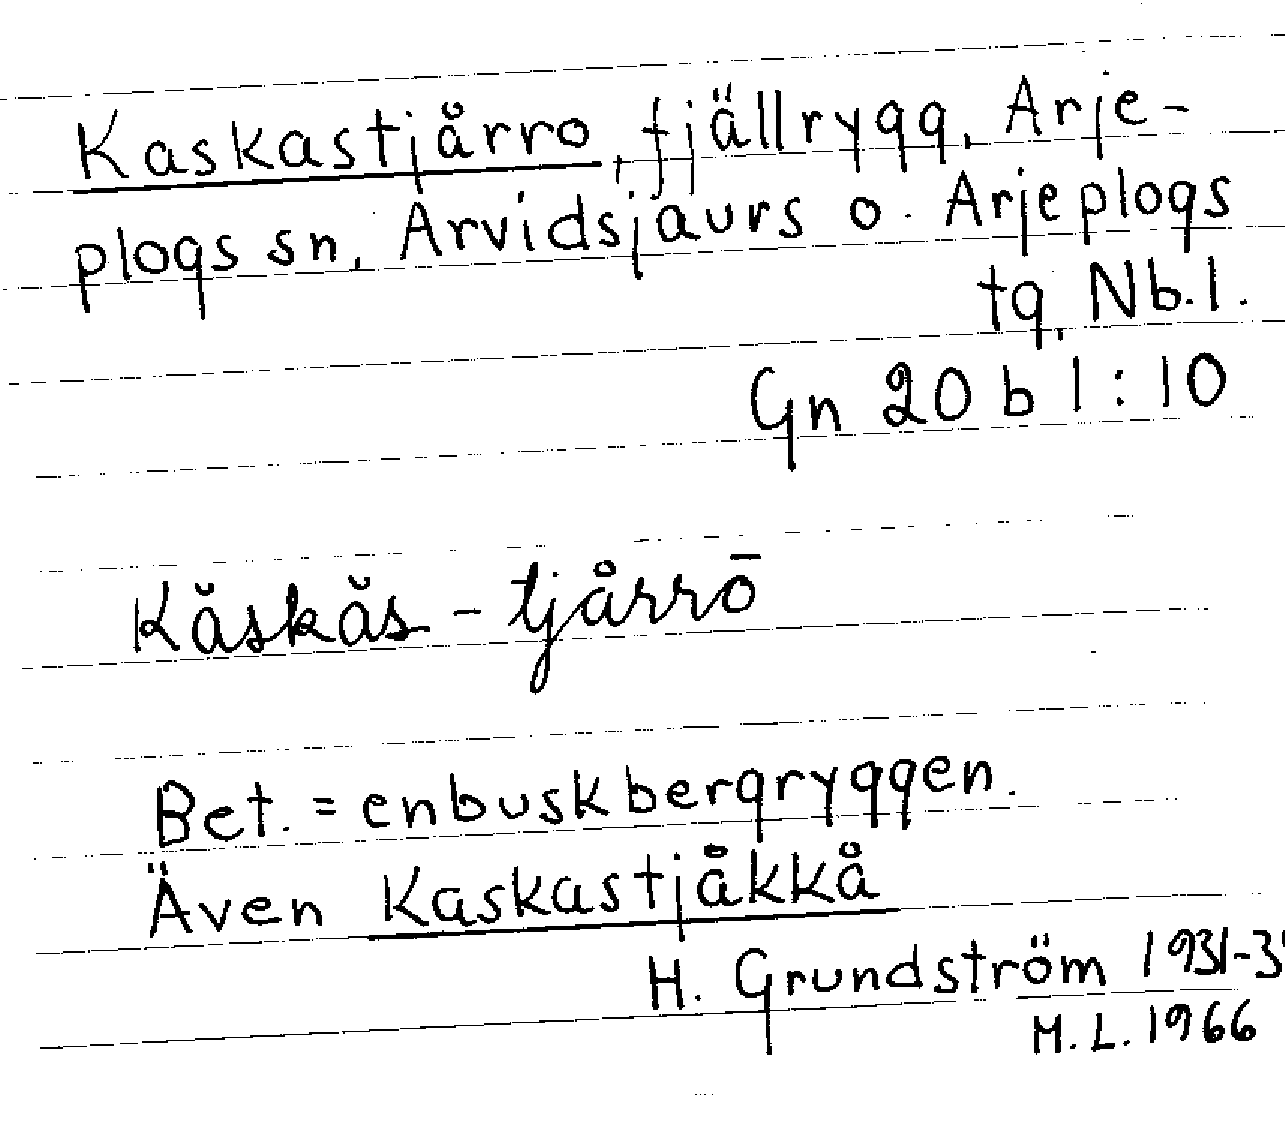 Kaskastjårro, fjällrygg, Arje-
plogs sn, Arvidsjaurs o. Arjeplogs
tg, Nb.l.
Gn 20 b 1:10
Kăskăs-tjårrō
Bet. = enbuskbergryggen.
Även Kaskastjåkkå
H. Grundström 1931-3
M.L. 1966